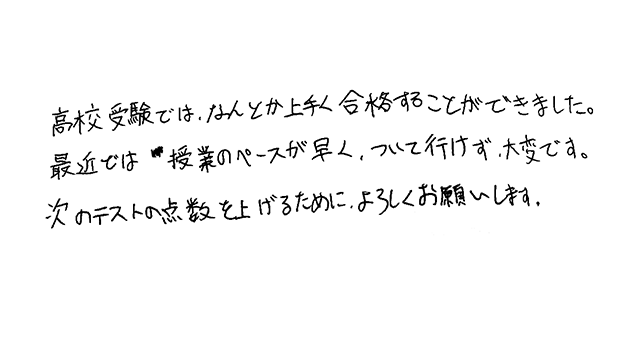 高校受験では、なんとか上手く合格することができました。
最近では授業のペースが早く、ついて行けず、大変です。
次のテストの点数を上げるために、よろしくお願いします。